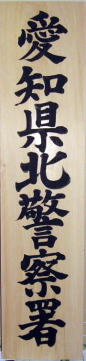 愛知県北警察署